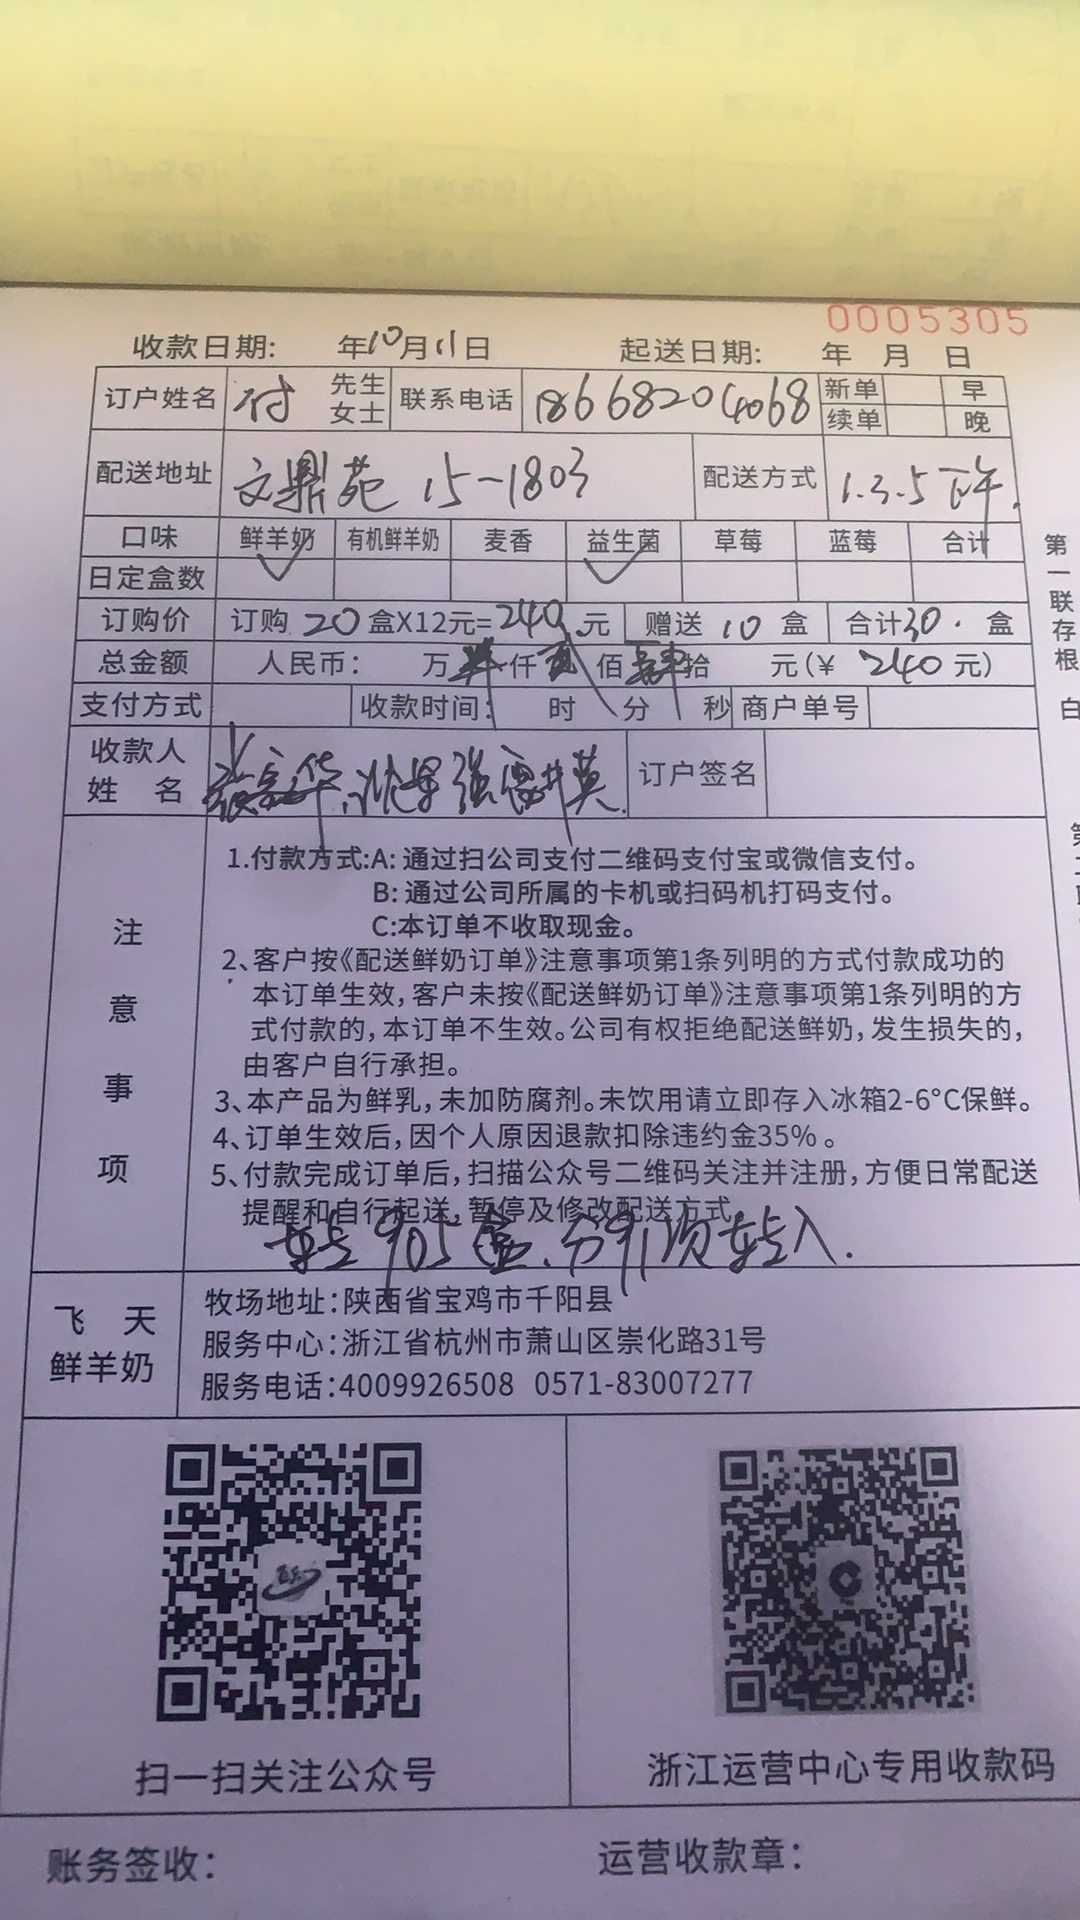 0005305
收款日期: 年10月11日 起送日期: 年 月 日
订户姓名 付 先生 女士 联系电话 18668204068 新单 续单 早 晚
配送地址 文鼎苑 15-1803 配送方式 1.3.5下午.
口味 鲜羊奶 有机鲜羊奶 麦香 益生菌 草莓 蓝莓 合计
日定盒数 ✓ ✓
订购价 订购 20 盒X12元=240元 赠送 10 盒 合计30. 盒
总金额 人民币: 万 仟 贰 佰 肆 拾 元(¥ 240 元)
支付方式 收款时间: 时 分 秒 商户单号
收款人
姓 名 订户签名
注意事项
1.付款方式:A: 通过扫公司支付二维码支付宝或微信支付。
B: 通过公司所属的卡机或扫码机打码支付。
C:本订单不收取现金。
2、客户按《配送鲜奶订单》注意事项第1条列明的方式付款成功的
本订单生效,客户未按《配送鲜奶订单》注意事项第1条列明的方
式付款的,本订单不生效。公司有权拒绝配送鲜奶,发生损失的,
由客户自行承担。
3、本产品为鲜乳,未加防腐剂。未饮用请立即存入冰箱2-6°C保鲜。
4、订单生效后,因个人原因退款扣除违约金35%。
5、付款完成订单后,扫描公众号二维码关注并注册,方便日常配送
提醒和自行起送,暂停及修改配送方式
转 905 盒、分 次转入.
飞 天
鲜羊奶
牧场地址:陕西省宝鸡市千阳县
服务中心:浙江省杭州市萧山区崇化路31号
服务电话:4009926508 0571-83007277
扫一扫关注公众号
浙江运营中心专用收款码
账务签收:
运营收款章:
第一联存根 白